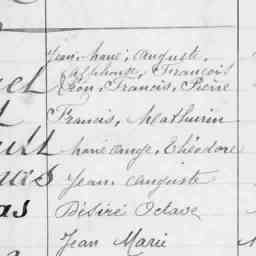 Jean, Marie, Auguste,
Alphonse, François
Léon, Francis, Pierre
Francis, Mathurin
Marie Ange, Théodore
Jean Auguste
as Désiré Octave
Jean Marie